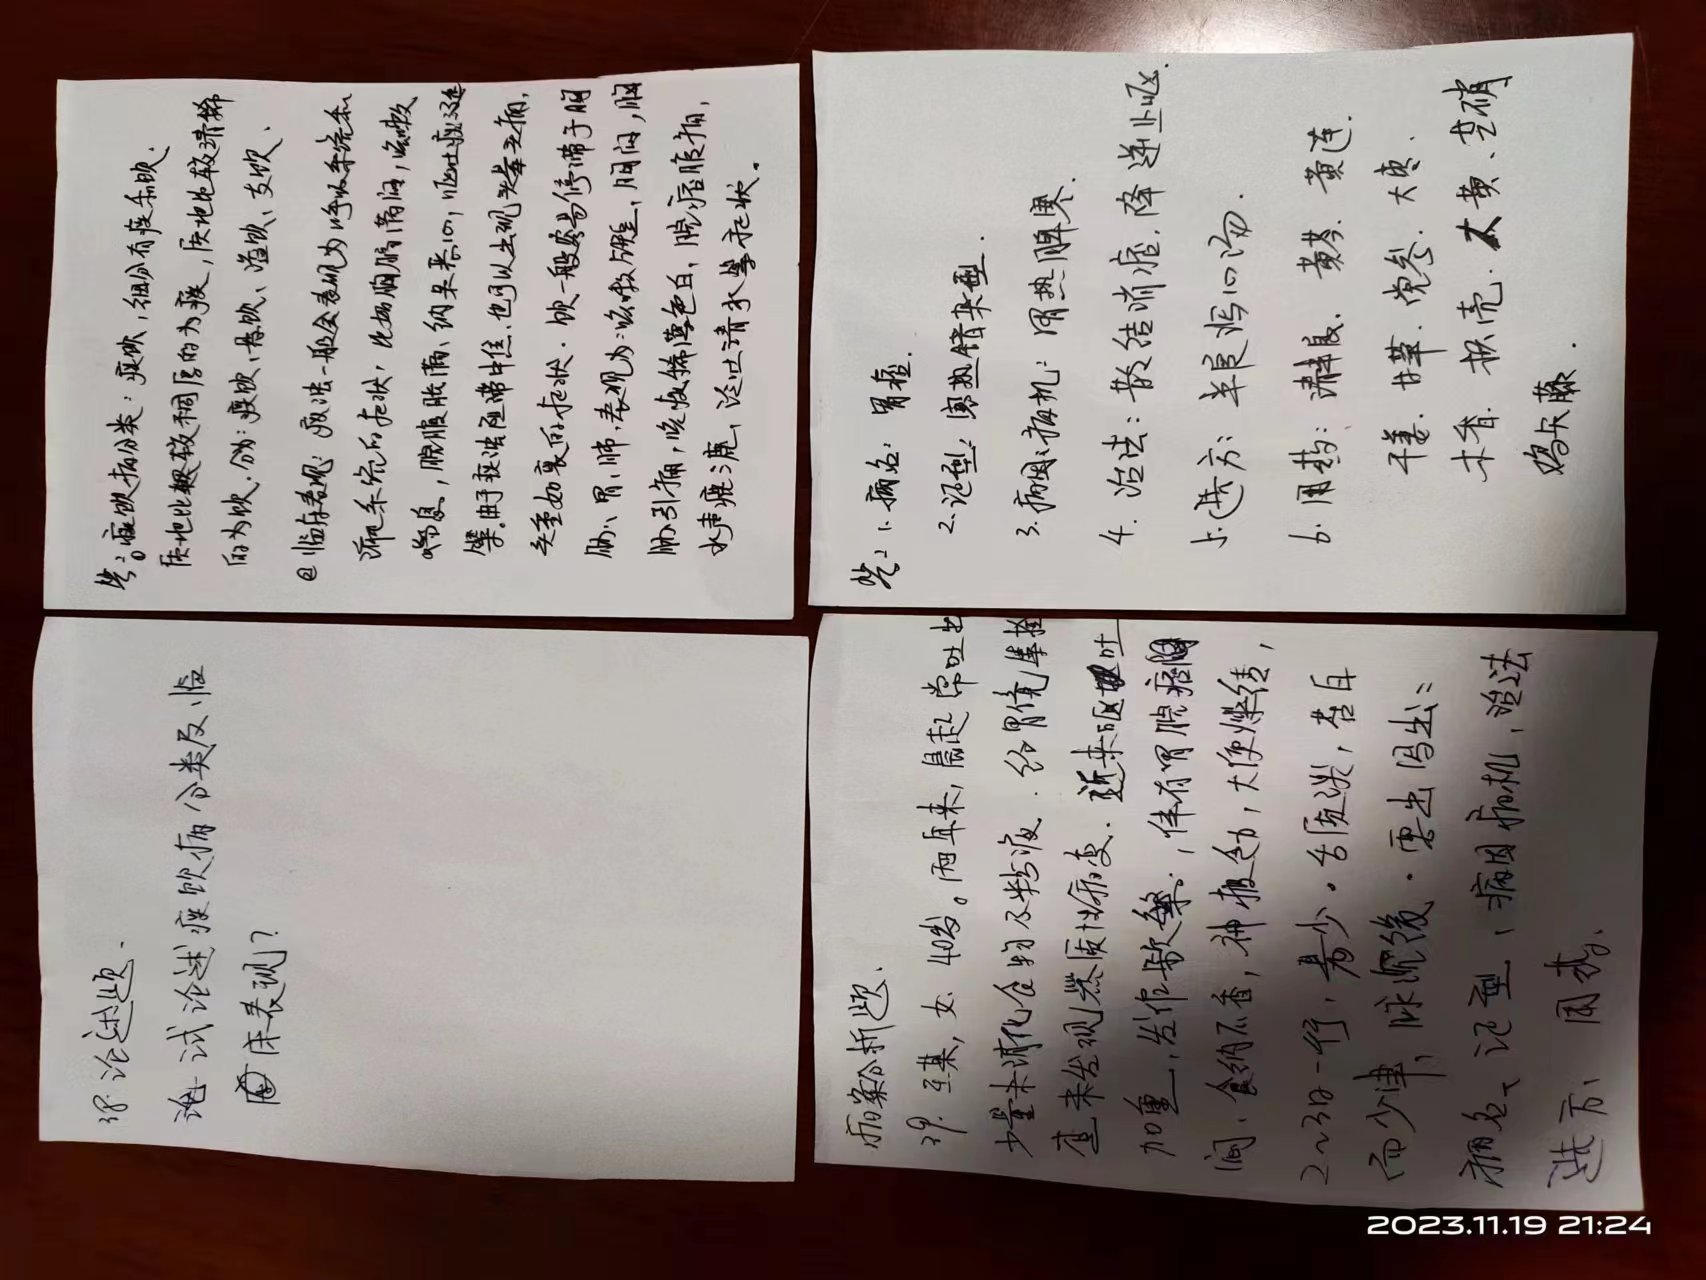 38. 论述题.
试论述痰饮病分类及临
床表现?
答:① 痰饮病分类: 痰饮, 细分有痰和饮.
质地比较稠厚的为痰, 质地比较清稀
的为饮. 分为: 痰饮、悬饮、溢饮、支饮.
② 临床表现: 痰浊一般会表现为呼吸系统和
消化系统的症状, 比如胸膈满闷, 咳嗽
喘息, 脘腹胀满、纳呆恶心, 呕吐痰涎
等. 由于痰浊阻滞中焦, 也可以出现头晕头痛,
头重如裹的症状. 饮一般容易停滞于胸
胁、胃、肺, 表现为: 咳嗽 胸闷, 胸
胁引痛, 咳痰稀薄色白, 脘痞腹痛,
水声漉漉, 泛吐清水等症状.
病案分析题.
39. 王某, 女. 40岁。两年来, 晨起常吐出
少量未消化食物及粘液. 经胃镜
查未发现器质性病变. 近来呕吐
加重, 发作频繁。, 伴有胃脘痞
闷、食纳不香, 神疲乏力, 大便燥结,
2~3日一行, 量少。舌质淡, 苔白
而少津, 脉沉缓. 要出写出:
病名、证型, 病因病机, 治法
选方、用药.
答: 1. 病名: 胃痞.
2. 证型: 寒热错杂型.
3. 病因病机: 胃热脾寒.
4. 治法: 散结消痞, 降逆止呕.
5. 选方: 半夏泻心汤.
6. 用药: 清半夏. 黄芩. 黄连.
干姜. 甘草. 党参. 大枣.
木香. 枳壳. 大黄. 芒硝
鸡矢藤.
2023.11.19 21:24